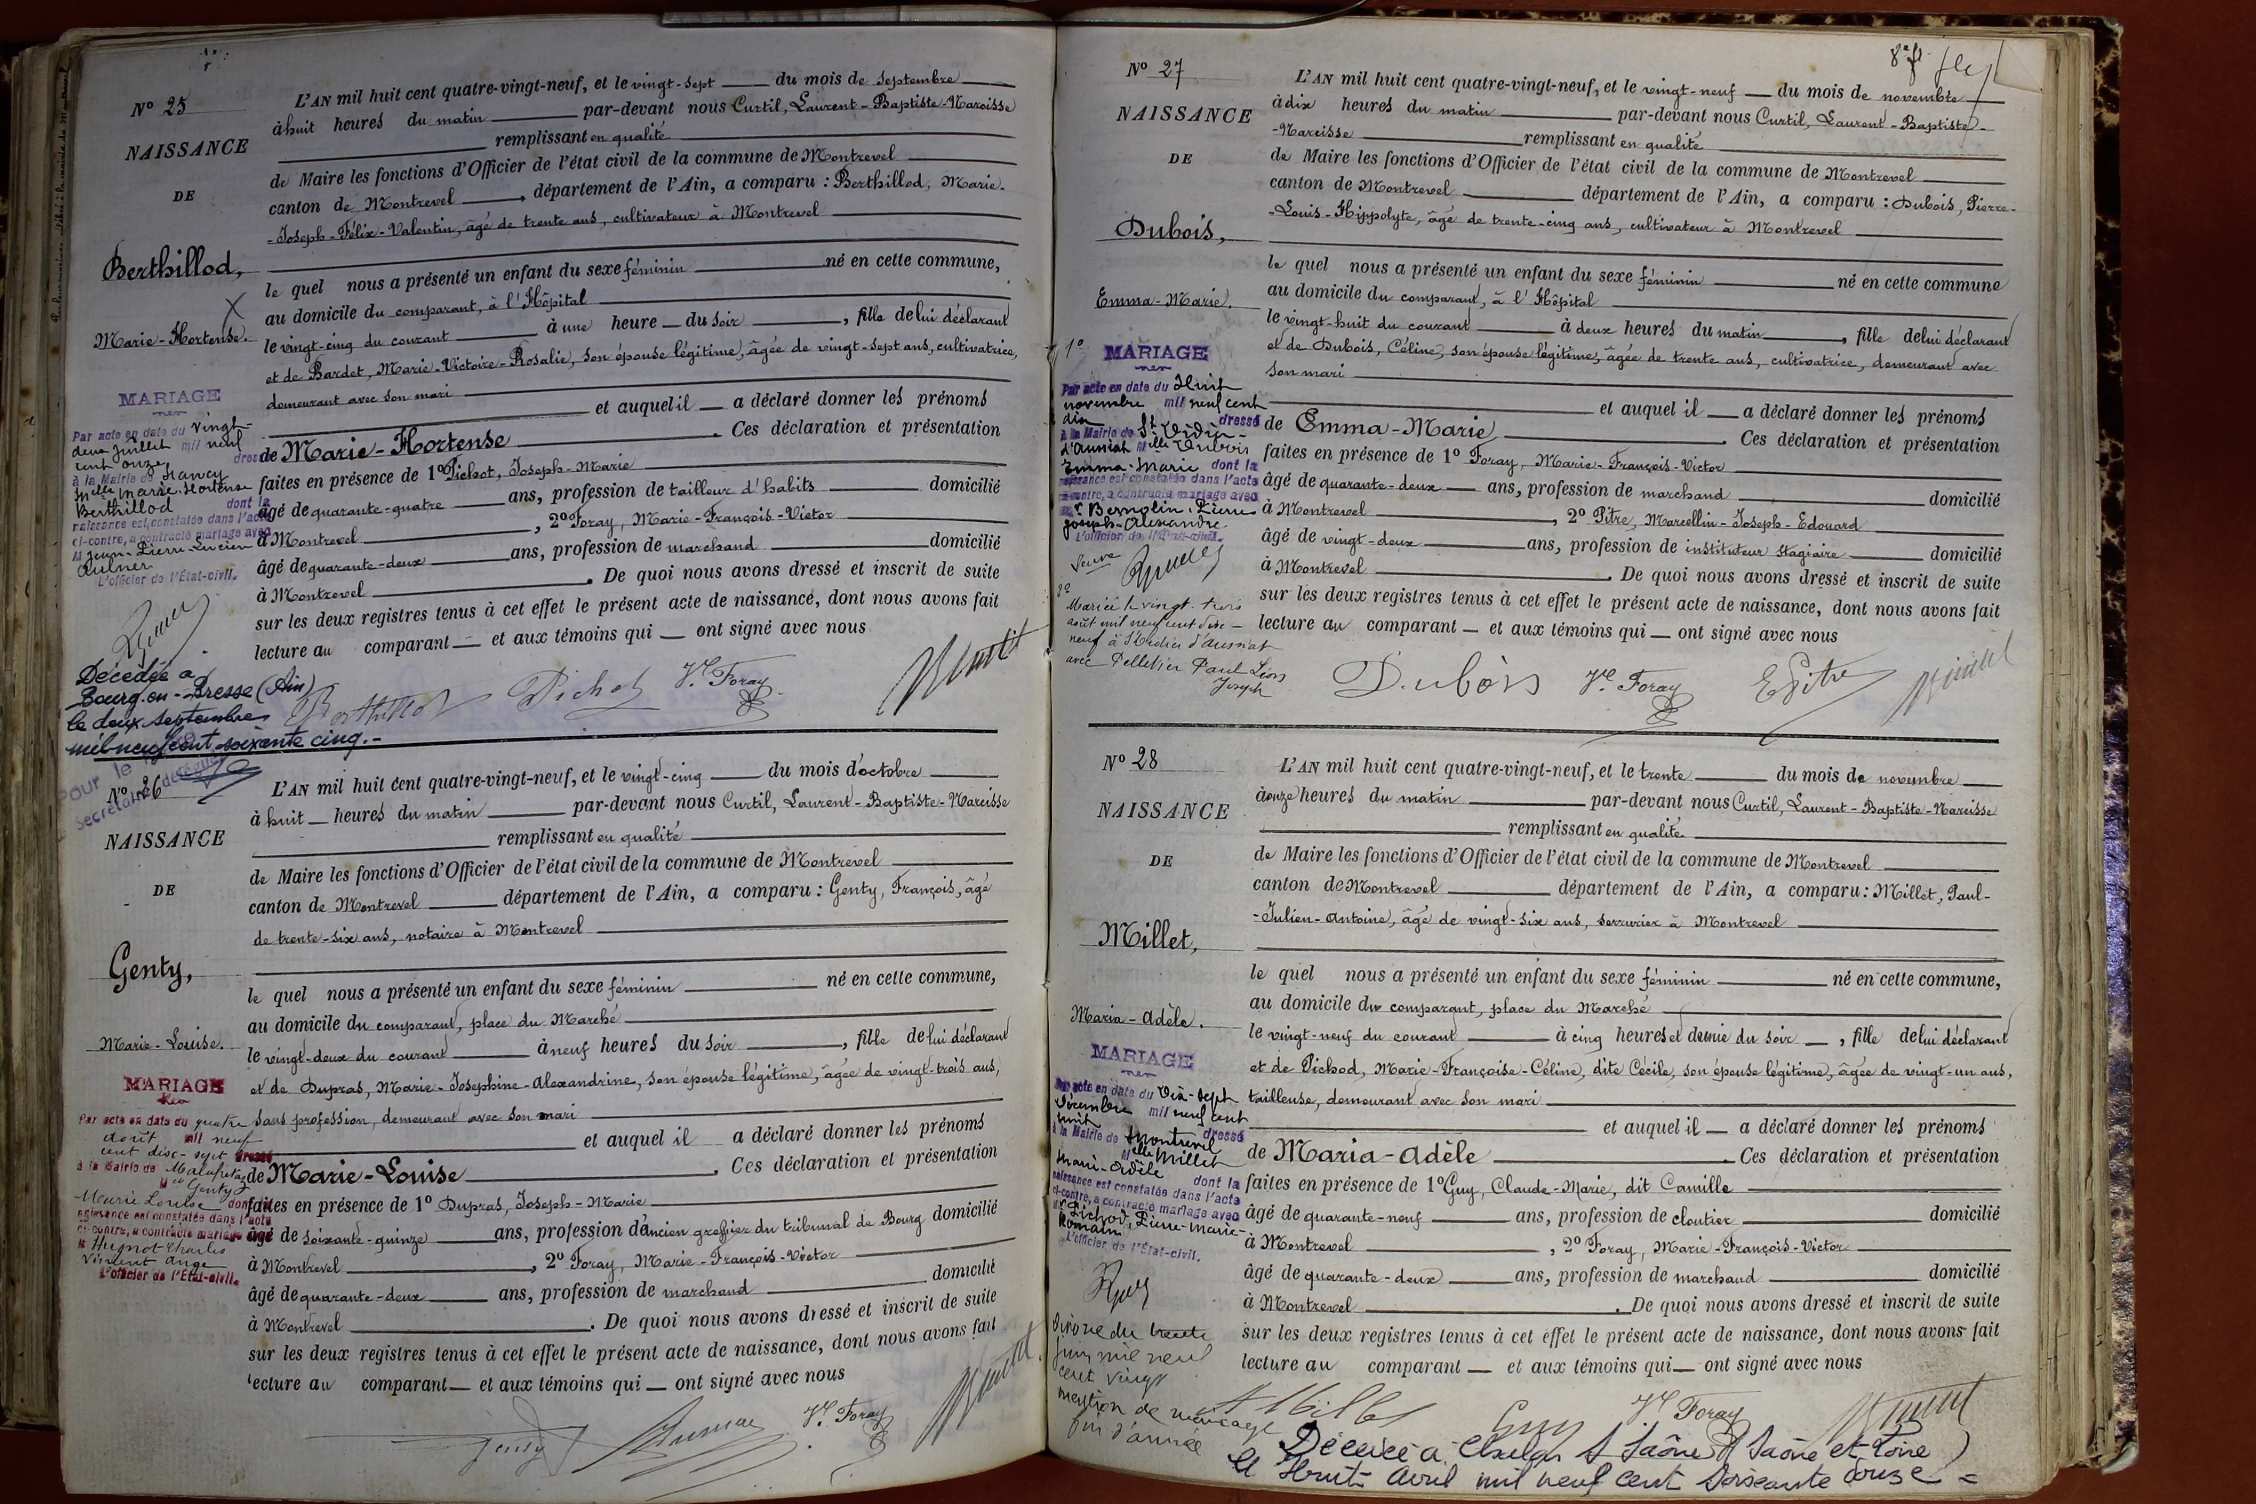 N° 25
NAISSANCE
DE
Berthillod,
Marie-Hortense.
L'AN mil huit cent quatre-vingt-neuf, et le vingt-sept du mois de septembre
à huit heures du matin par-devant nous Curtil, Laurent-Baptiste-Narcisse
remplissant en qualité
de Maire les fonctions d'Officier de l'état civil de la commune de Montrevel
canton de Montrevel, département de l'Ain, a comparu : Berthillod, Marie-
-Joseph-Félix-Valentin, âgé de trente ans, cultivateur à Montrevel
le quel nous a présenté un enfant du sexe féminin né en cette commune,
au domicile du comparant, à l'Hôpital
le vingt-cinq du courant à une heure du soir, fille de lui déclarant
et de Bardet, Marie-Victoire-Rosalie, son épouse légitime, âgée de vingt-sept ans, cultivatrice,
demeurant avec son mari
et auquel il a déclaré donner les prénoms
de Marie-Hortense. Ces déclaration et présentation
faites en présence de 1° Pichot, Joseph-Marie
âgé de quarante-quatre ans, profession de tailleur d'habits domicilié
à Montrevel, 2° Foray, Marie-François-Victor
âgé de quarante-deux ans, profession de marchand domicilié
à Montrevel. De quoi nous avons dressé et inscrit de suite
sur les deux registres tenus à cet effet le présent acte de naissance, dont nous avons fait
lecture au comparant et aux témoins qui ont signé avec nous
Berthillod Pichot Vr Foray
MARIAGE
Par acte en date du vingt-
deux juillet mil neuf
cent onze dressé
à la Mairie de Nancy
Melle Marie-Hortense
Berthillod dont la
naissance est constatée dans l'acte
ci-contre, a contracté mariage avec
M Jean-Pierre-Lucien
Aulner
L'officier de l'État-civil.
Décédée à
Bourg-en-Bresse (Ain)
le deux septembre
mil neuf cent soixante cinq.-
Pour le
Secrétaire délégué
N° 26
NAISSANCE
DE
Genty,
Marie-Louise.
L'AN mil huit cent quatre-vingt-neuf, et le vingt-cinq du mois d'octobre
à huit heures du matin par-devant nous Curtil, Laurent-Baptiste-Narcisse
remplissant en qualité
de Maire les fonctions d'Officier de l'état civil de la commune de Montrevel
canton de Montrevel département de l'Ain, a comparu : Genty, François, âgé
de trente-six ans, notaire à Montrevel
le quel nous a présenté un enfant du sexe féminin né en cette commune,
au domicile du comparant, place du Marché
le vingt-deux du courant à neuf heures du soir, fille de lui déclarant
et de Dupras, Marie-Josephine-Alexandrine, son épouse légitime, âgée de vingt-trois ans,
sans profession, demeurant avec son mari
et auquel il a déclaré donner les prénoms
de Marie-Louise. Ces déclaration et présentation
faites en présence de 1° Dupras, Joseph-Marie
âgé de soixante-quinze ans, profession d'ancien greffier du tribunal de Bourg domicilié
à Montrevel, 2° Foray, Marie-François-Victor
âgé de quarante-deux ans, profession de marchand domicilié
à Montrevel. De quoi nous avons dressé et inscrit de suite
sur les deux registres tenus à cet effet le présent acte de naissance, dont nous avons fait
lecture au comparant et aux témoins qui ont signé avec nous
Genty Vr Foray
MARIAGE
Par acte en date du quatre
août mil neuf
cent dix-sept dressé
à la Mairie de Malafretaz
Melle Genty
Marie Louise dont la
naissance est constatée dans l'acte
ci-contre, a contracté mariage avec
M Hugnot Charles
Vincent Ange
L'officier de l'État-civil.
N° 27
NAISSANCE
DE
Dubois,
Emma-Marie.
L'AN mil huit cent quatre-vingt-neuf, et le vingt-neuf du mois de novembre
à dix heures du matin par-devant nous Curtil, Laurent-Baptiste-
-Narcisse remplissant en qualité
de Maire les fonctions d'Officier de l'état civil de la commune de Montrevel
canton de Montrevel département de l'Ain, a comparu : Dubois, Pierre-
-Louis-Hippolyte, âgé de trente-cinq ans, cultivateur à Montrevel
le quel nous a présenté un enfant du sexe féminin né en cette commune
au domicile du comparant, à l'Hôpital
le vingt-huit du courant à deux heures du matin, fille de lui déclarant
et de Dubois, Céline, son épouse légitime, âgée de trente ans, cultivatrice, demeurant avec
son mari
et auquel il a déclaré donner les prénoms
de Emma-Marie. Ces déclaration et présentation
faites en présence de 1° Foray, Marie-François-Victor
âgé de quarante-deux ans, profession de marchand domicilié
à Montrevel, 2° Pitre, Marcellin-Joseph-Edouard
âgé de vingt-deux ans, profession de instituteur stagiaire domicilié
à Montrevel. De quoi nous avons dressé et inscrit de suite
sur les deux registres tenus à cet effet le présent acte de naissance, dont nous avons fait
lecture au comparant et aux témoins qui ont signé avec nous
Dubois Vr Foray E Pitre
1°
MARIAGE
Par acte en date du Huit
novembre mil neuf cent
dix dressé
à la Mairie de St Didier-
d'Aussiat Melle Dubois
Emma-Marie dont la
naissance est constatée dans l'acte
ci-contre, a contracté mariage avec
Mr Bernolin, Pierre
Joseph-Alexandre.
L'officier de l'État-civil.
Veuve
2°
Mariée le vingt-trois
août mil neuf cent dix-
neuf à St Didier d'Aussiat
avec Pelletier Paul Léon
Joseph
N° 28
NAISSANCE
DE
Millet,
Maria-Adèle.
L'AN mil huit cent quatre-vingt-neuf, et le trente du mois de novembre
à onze heures du matin par-devant nous Curtil, Laurent-Baptiste-Narcisse
remplissant en qualité
de Maire les fonctions d'Officier de l'état civil de la commune de Montrevel
canton de Montrevel département de l'Ain, a comparu : Millet, Paul-
-Julien-Antoine, âgé de vingt-six ans, serrurier à Montrevel
le quel nous a présenté un enfant du sexe féminin né en cette commune,
au domicile du comparant, place du Marché
le vingt-neuf du courant à cinq heures et demie du soir, fille de lui déclarant
et de Pichod, Marie-Françoise-Céline, dite Cécile, son épouse légitime, âgée de vingt-un ans,
tailleuse, demeurant avec son mari
et auquel il a déclaré donner les prénoms
de Maria-Adèle. Ces déclaration et présentation
faites en présence de 1° Guy, Claude-Marie, dit Camille
âgé de quarante-neuf ans, profession de cloutier domicilié
à Montrevel, 2° Foray, Marie-François-Victor
âgé de quarante-deux ans, profession de marchand domicilié
à Montrevel. De quoi nous avons dressé et inscrit de suite
sur les deux registres tenus à cet effet le présent acte de naissance, dont nous avons fait
lecture au comparant et aux témoins qui ont signé avec nous
Millet Guy Vr Foray
MARIAGE
Par acte en date du Dix-sept
Décembre mil neuf cent
huit dressé
à la Mairie de Montrevel
Melle Millet
Marie-Adèle dont la
naissance est constatée dans l'acte
ci-contre, a contracté mariage avec
Mr Pichod, Pierre-Marie-
Romain
L'officier de l'État-civil.
Divorce du trente
juin mil neuf
cent vingt
mention de mariage
fin d'année
Décédée à Chalon S Saône (Saône et Loire)
le Huit Avril mil neuf cent soixante douze =